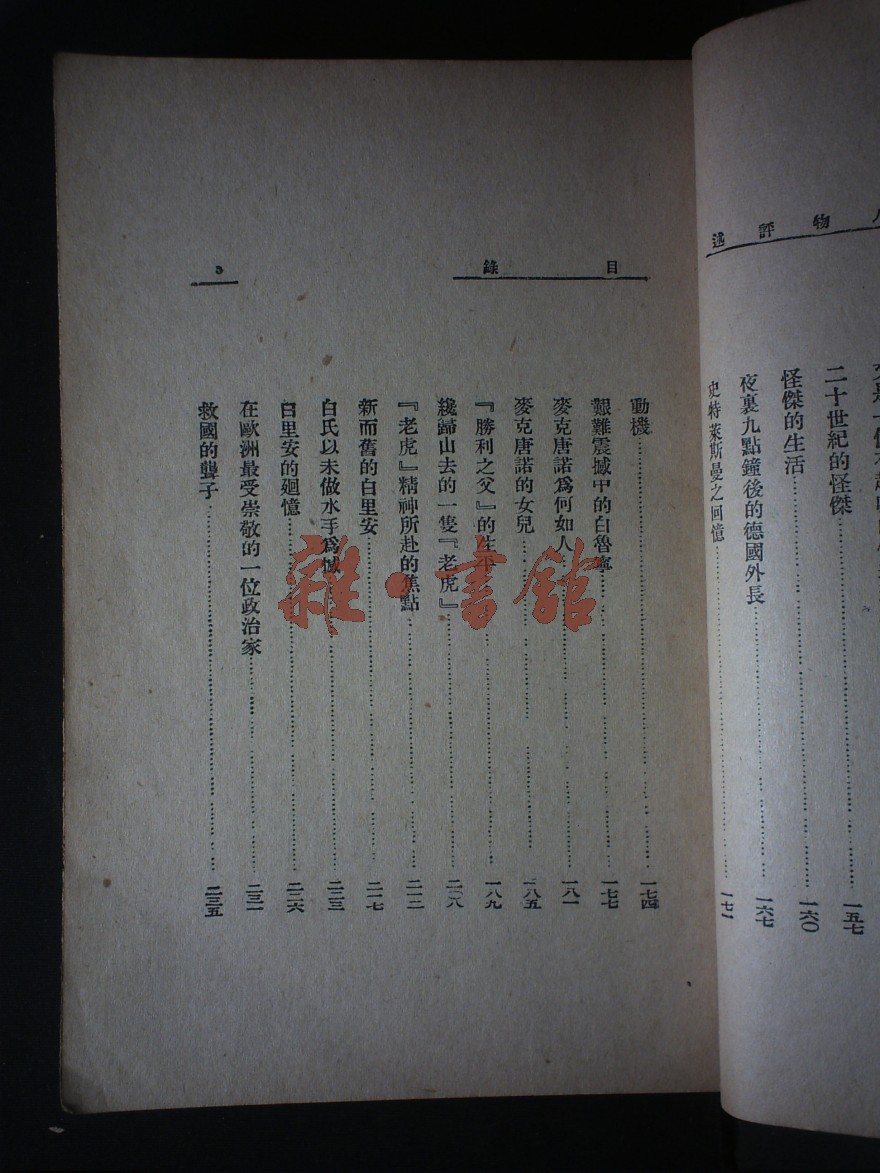 物評述
二十世紀的怪傑……一五七
怪傑的生活……一六〇
夜裏九點鐘後的德國外長……一六七
史特萊斯曼之回憶……一七一
目錄
動機……一七四
艱難震撼中的白魯寧……一七七
麥克唐諾爲何如人……一八一
麥克唐諾的女兒……一八五
『勝利之父』的生平……一八九
纔歸山去的一隻『老虎』……二〇八
『老虎』精神所赴的焦點……二一二
新而舊的白里安……二一七
白氏以未做水手爲憾……二二三
白里安的廻憶……二二六
在歐洲最受崇敬的一位政治家……二三一
救國的聾子……二三五
雜·書館